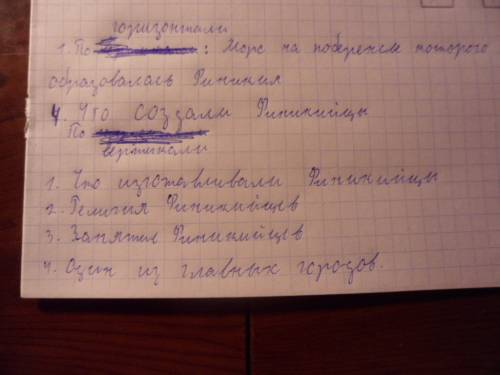 горизонтали
1. По : Море на побережье которого
образовалась Финикия
4. Что создали Финикийцы
По
вертикали
1. Что изготавливали Финикийцы
2. Религия Финикийцев
3. Занятие Финикийцев
4. Один из главных городов.